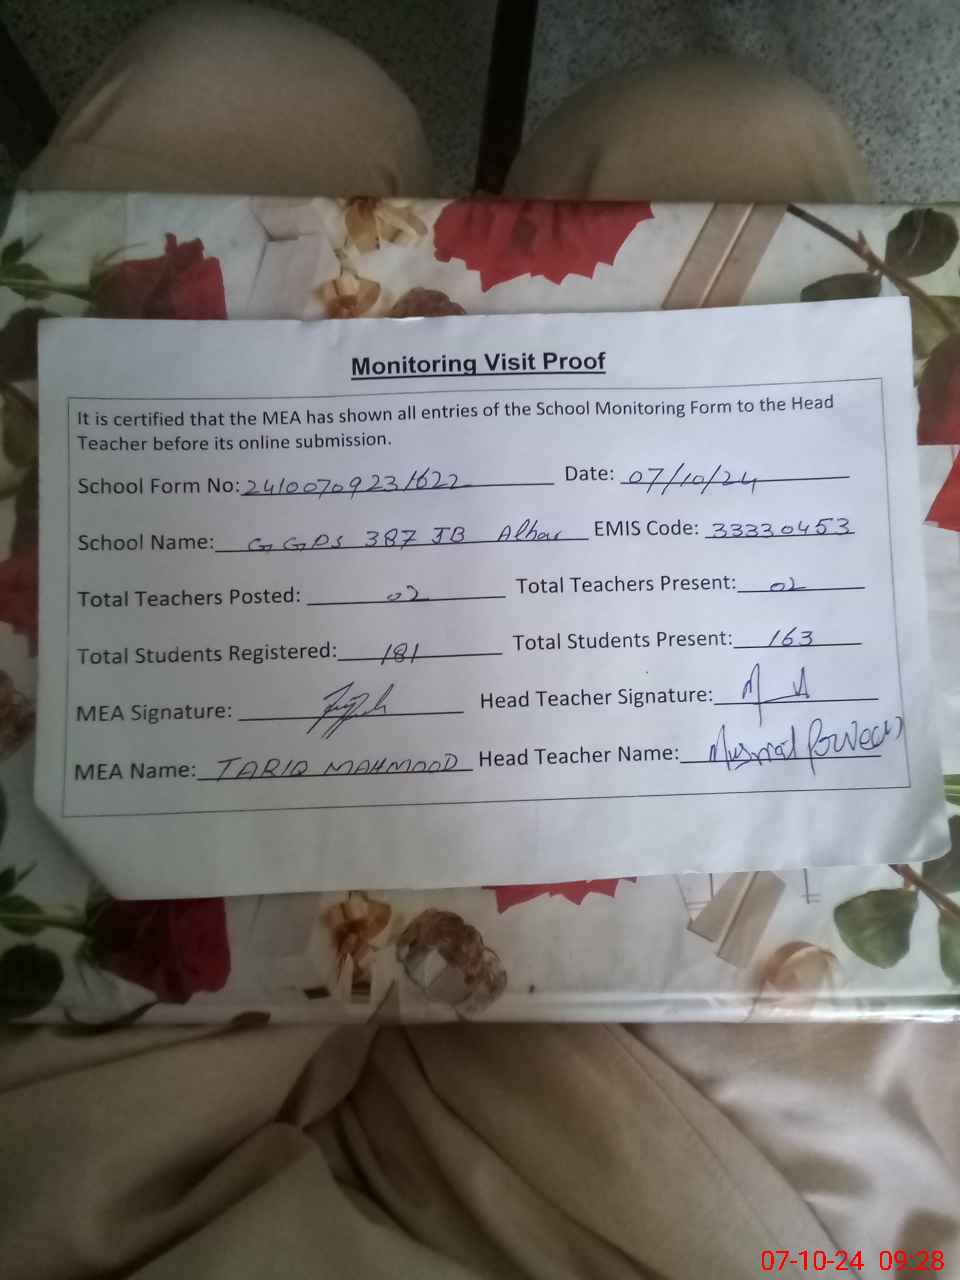 Monitoring Visit Proof
It is certified that the MEA has shown all entries of the School Monitoring Form to the Head
Teacher before its online submission.
School Form No: 24100709231622 Date: 07/10/24
School Name: GGPS 387 JB EMIS Code: 33330453
Total Teachers Posted: 02 Total Teachers Present: 02
Total Students Registered: 181 Total Students Present: 163
MEA Signature: Head Teacher Signature:
MEA Name: TARIQ MAHMOOD Head Teacher Name:
07-10-24 09:28